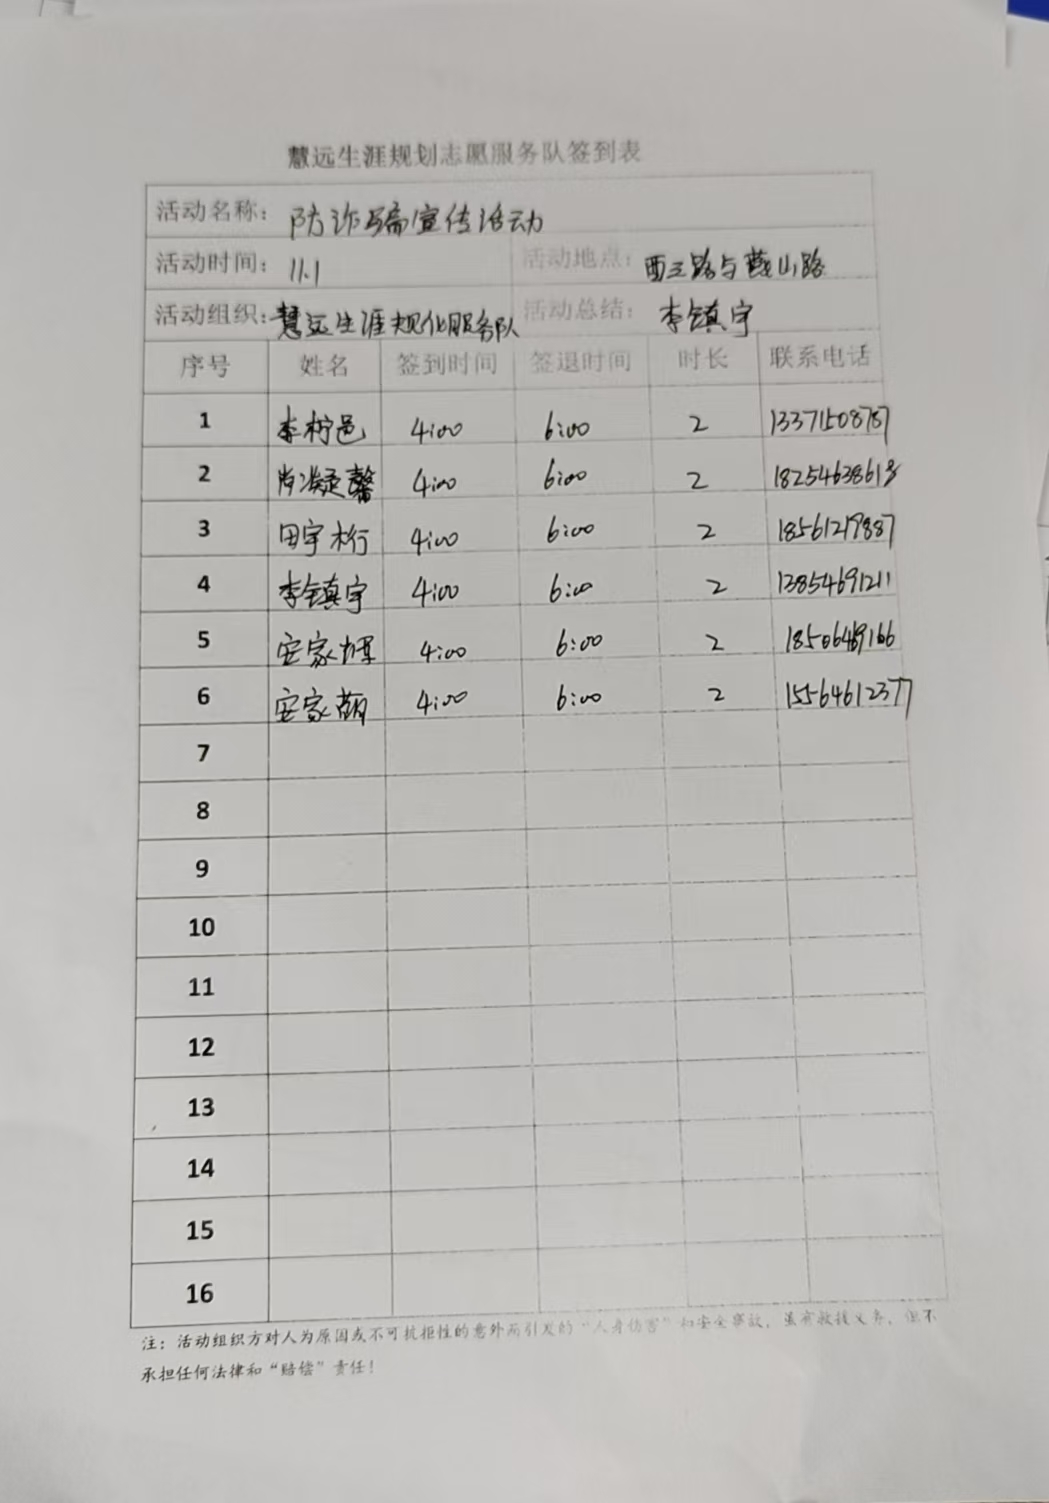 慧远生涯规划志愿服务队签到表
活动名称： 防诈骗宣传活动
活动时间： 11.1 活动地点： 西三路与燕山路
活动组织： 慧远生涯规化服务队 活动总结： 李镇宇
序号 姓名 签到时间 签退时间 时长 联系电话
1 李柠邑 4:00 6:00 2 13371508787
2 肖凝馨 4:00 6:00 2 18254638618
3 田宇桁 4:00 6:00 2 18561219887
4 李镇宇 4:00 6:00 2 13854691211
5 安家 4:00 6:00 2
6 安家萌 4:00 6:00 2 15564612377
7
8
9
10
11
12
13
14
15
16
注：活动组织方对人为原因或不可抗拒性的意外所引发的“人身伤害”和安全事故，虽有救援义务，但不
承担任何法律和“赔偿”责任！